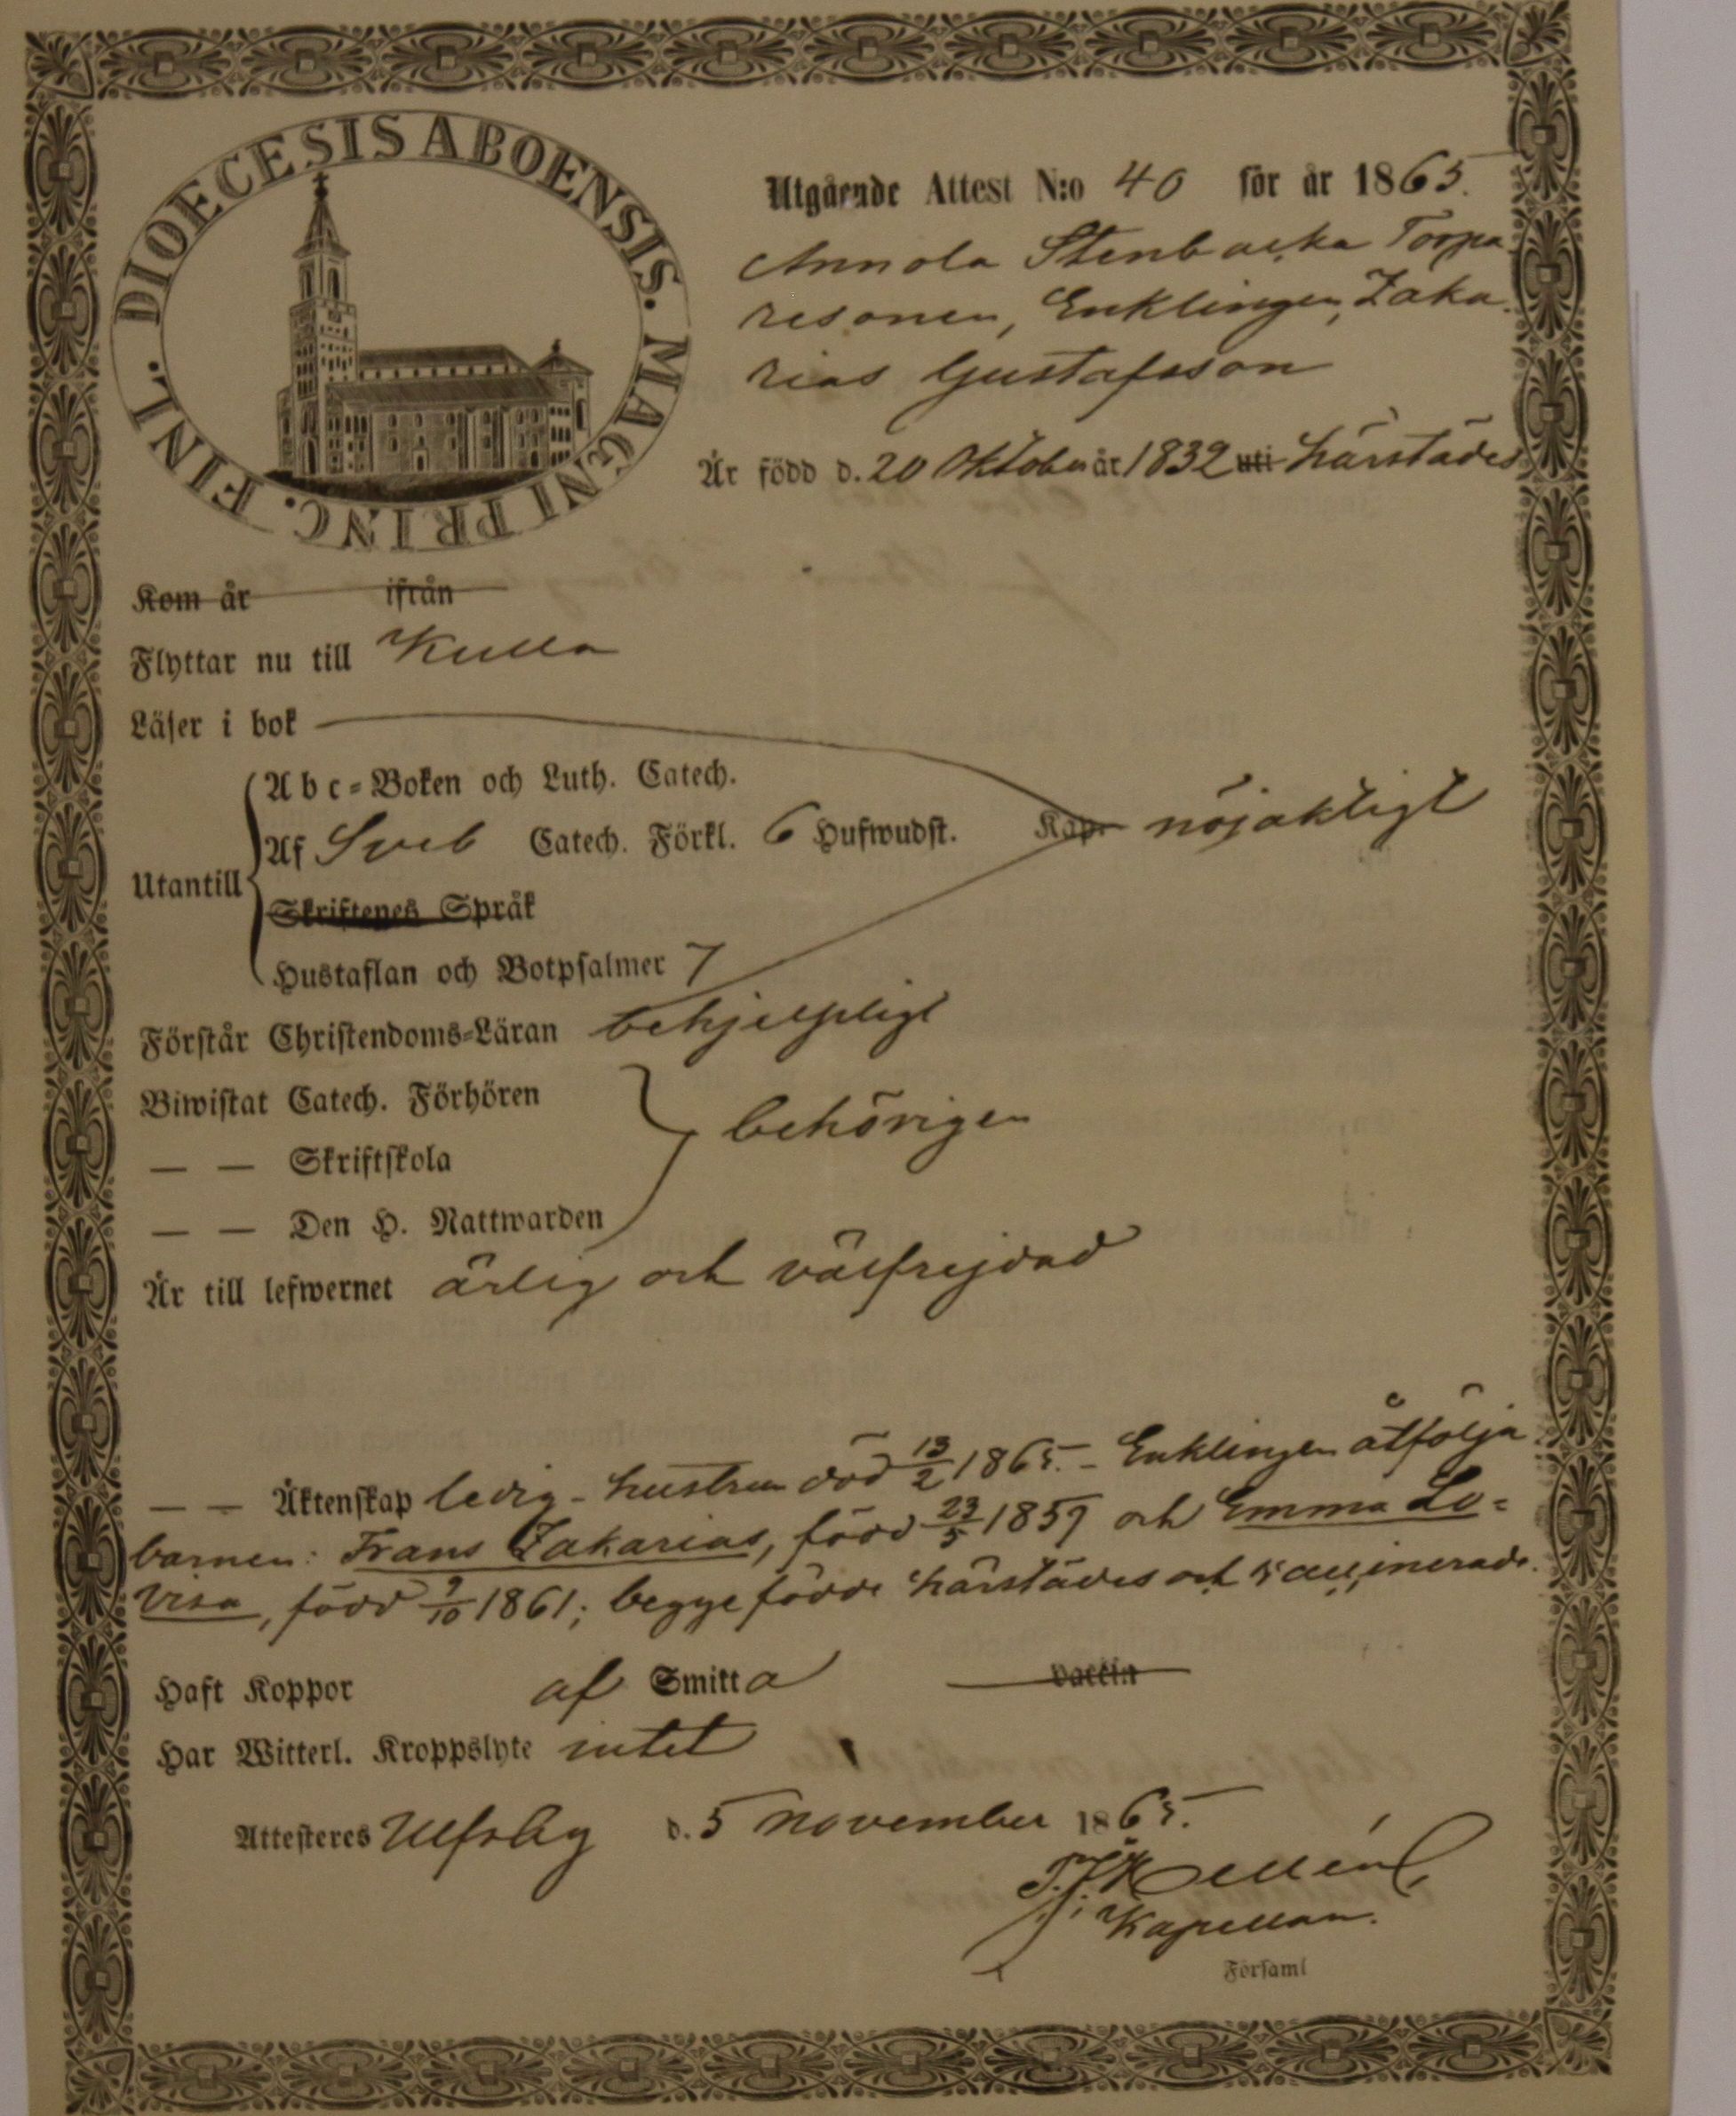 DIOECESIS ABOENSIS. MAGNI PRINC. FINL.
Utgående Attest N:o 40 för år 1865.
Annola Stenbacka Torpa-
resonen, Enklingen, Zaka-
rias Gustafsson
Är född d. 20 Oktober år 1832 uti härstädes
Kom år ifrån
Flyttar nu till Kulla
Läser i bok
Abc=Boken och Luth. Catech.
Utantill Af Sveb Catech. Förkl. 6 Hufwudst. Kap. nöjaktigt
Skriftenes Språk
Hustaflan och Botpsalmer 7
Förstår Christendoms=Läran behjelpligt
Biwistat Catech. Förhören
— — Skriftskola behörigen
— — Den H. Nattwarden
Är till lefwernet ärlig och välfrejdad
— — Äktenskap ledig - hustrun död 13/2 1865. - Enklingen åtfölja
barnen: Frans Zakarias, född 23/5 1859 och Emma Lo=
visa, född 9/10 1861; begge födde härstädes och vaccinerade.
Haft Koppor af Smitta vaccin
Har Witterl. Kroppslyte intet
Attesteres Ulfsby d. 5 November 1865.
Hellén
Kapellan.
Församl